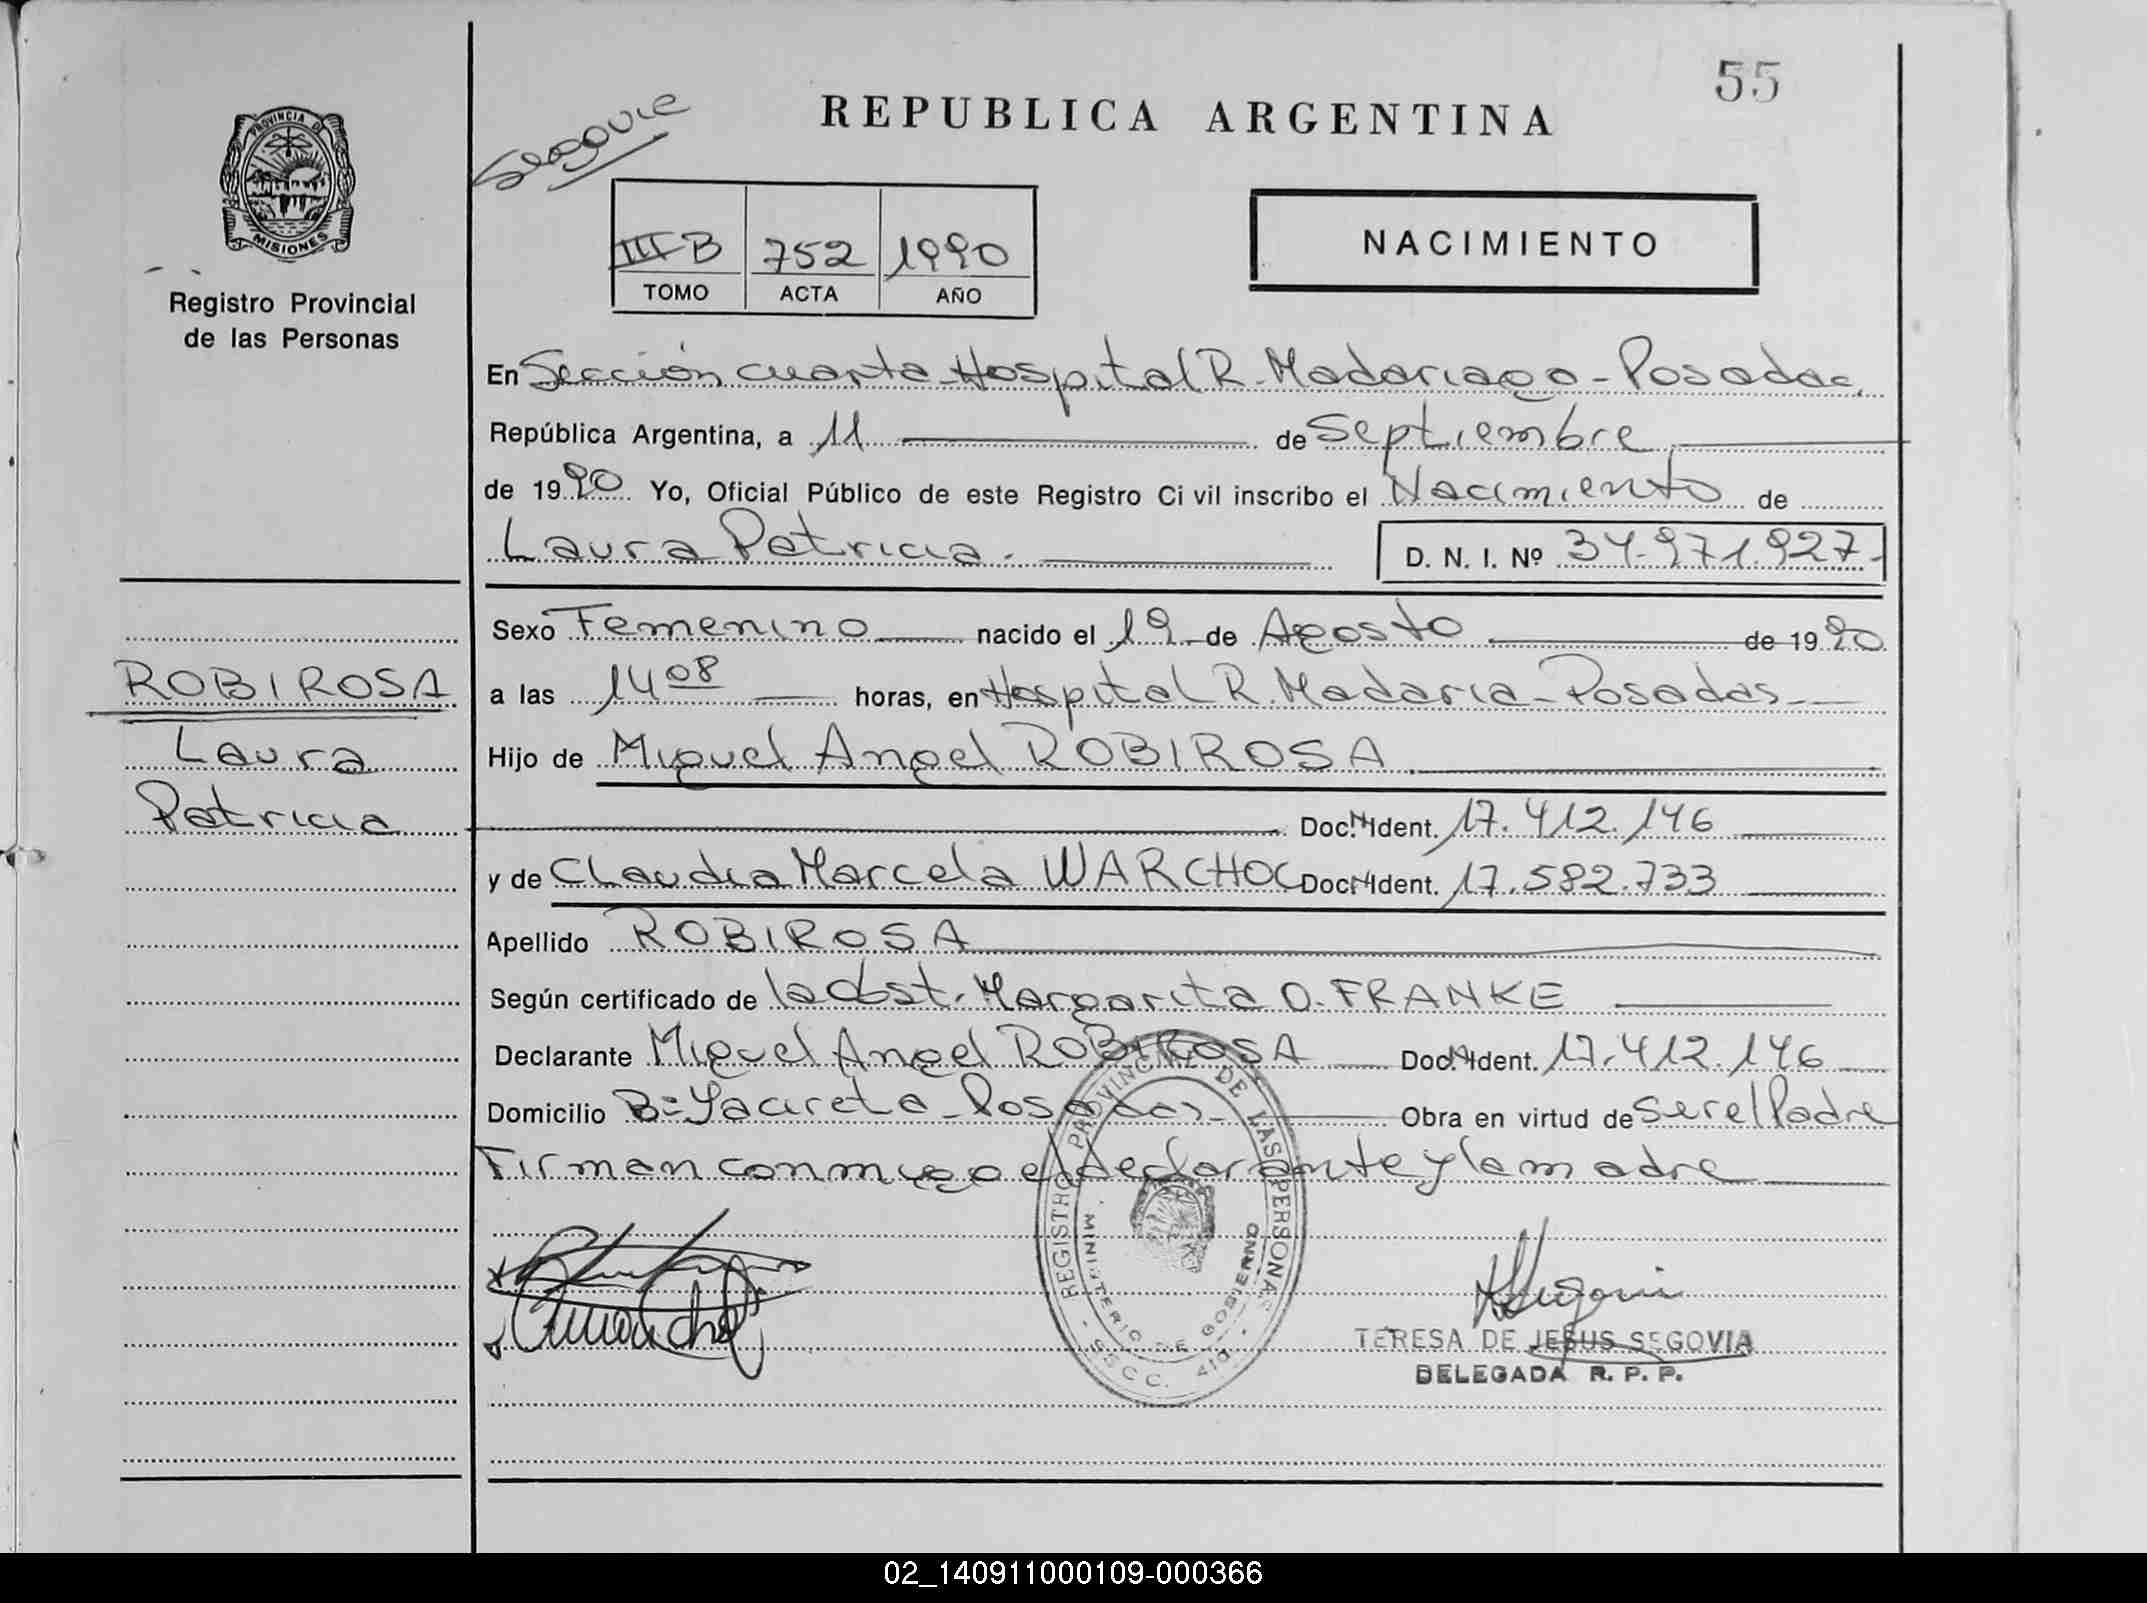 55
Segovie
REPUBLICA ARGENTINA
PROVINCIA DE
MISIONES
Registro Provincial
de las Personas
III B 752 1990
TOMO ACTA AÑO
NACIMIENTO
En Sección cuarta Hospital R. Madariaga - Posadas.
República Argentina, a 11 de Septiembre
de 1990 Yo, Oficial Público de este Registro Ci vil inscribo el Nacimiento de
Laura Patricia. D. N. I. Nº 34.971.927-
Sexo Femenino nacido el 19 de Agosto de 1990
a las 14 08 horas, en Hospital R. Madaria - Posadas
Hijo de Miguel Angel ROBIROSA
Doc. N Ident. 17.412.146
y de Claudia Marcela WARCHOC Doc. N Ident. 17.582.733
Apellido ROBIROSA
Según certificado de la Obst. Margarita O. FRANKE
Declarante Miguel Angel ROBIROSA Doc. N Ident. 17.412.146
Domicilio Bº Yacireta - Posadas Obra en virtud de ser el Padre
Firman conmigo el declarante y la madre
ROBIROSA
Laura
Patricia
REGISTRO PROVINCIAL DE LAS PERSONAS
MINISTERIO DE GOBIERNO
SECC. 4ta
TERESA DE JESUS SEGOVIA
DELEGADA R. P. P.
02_140911000109-000366